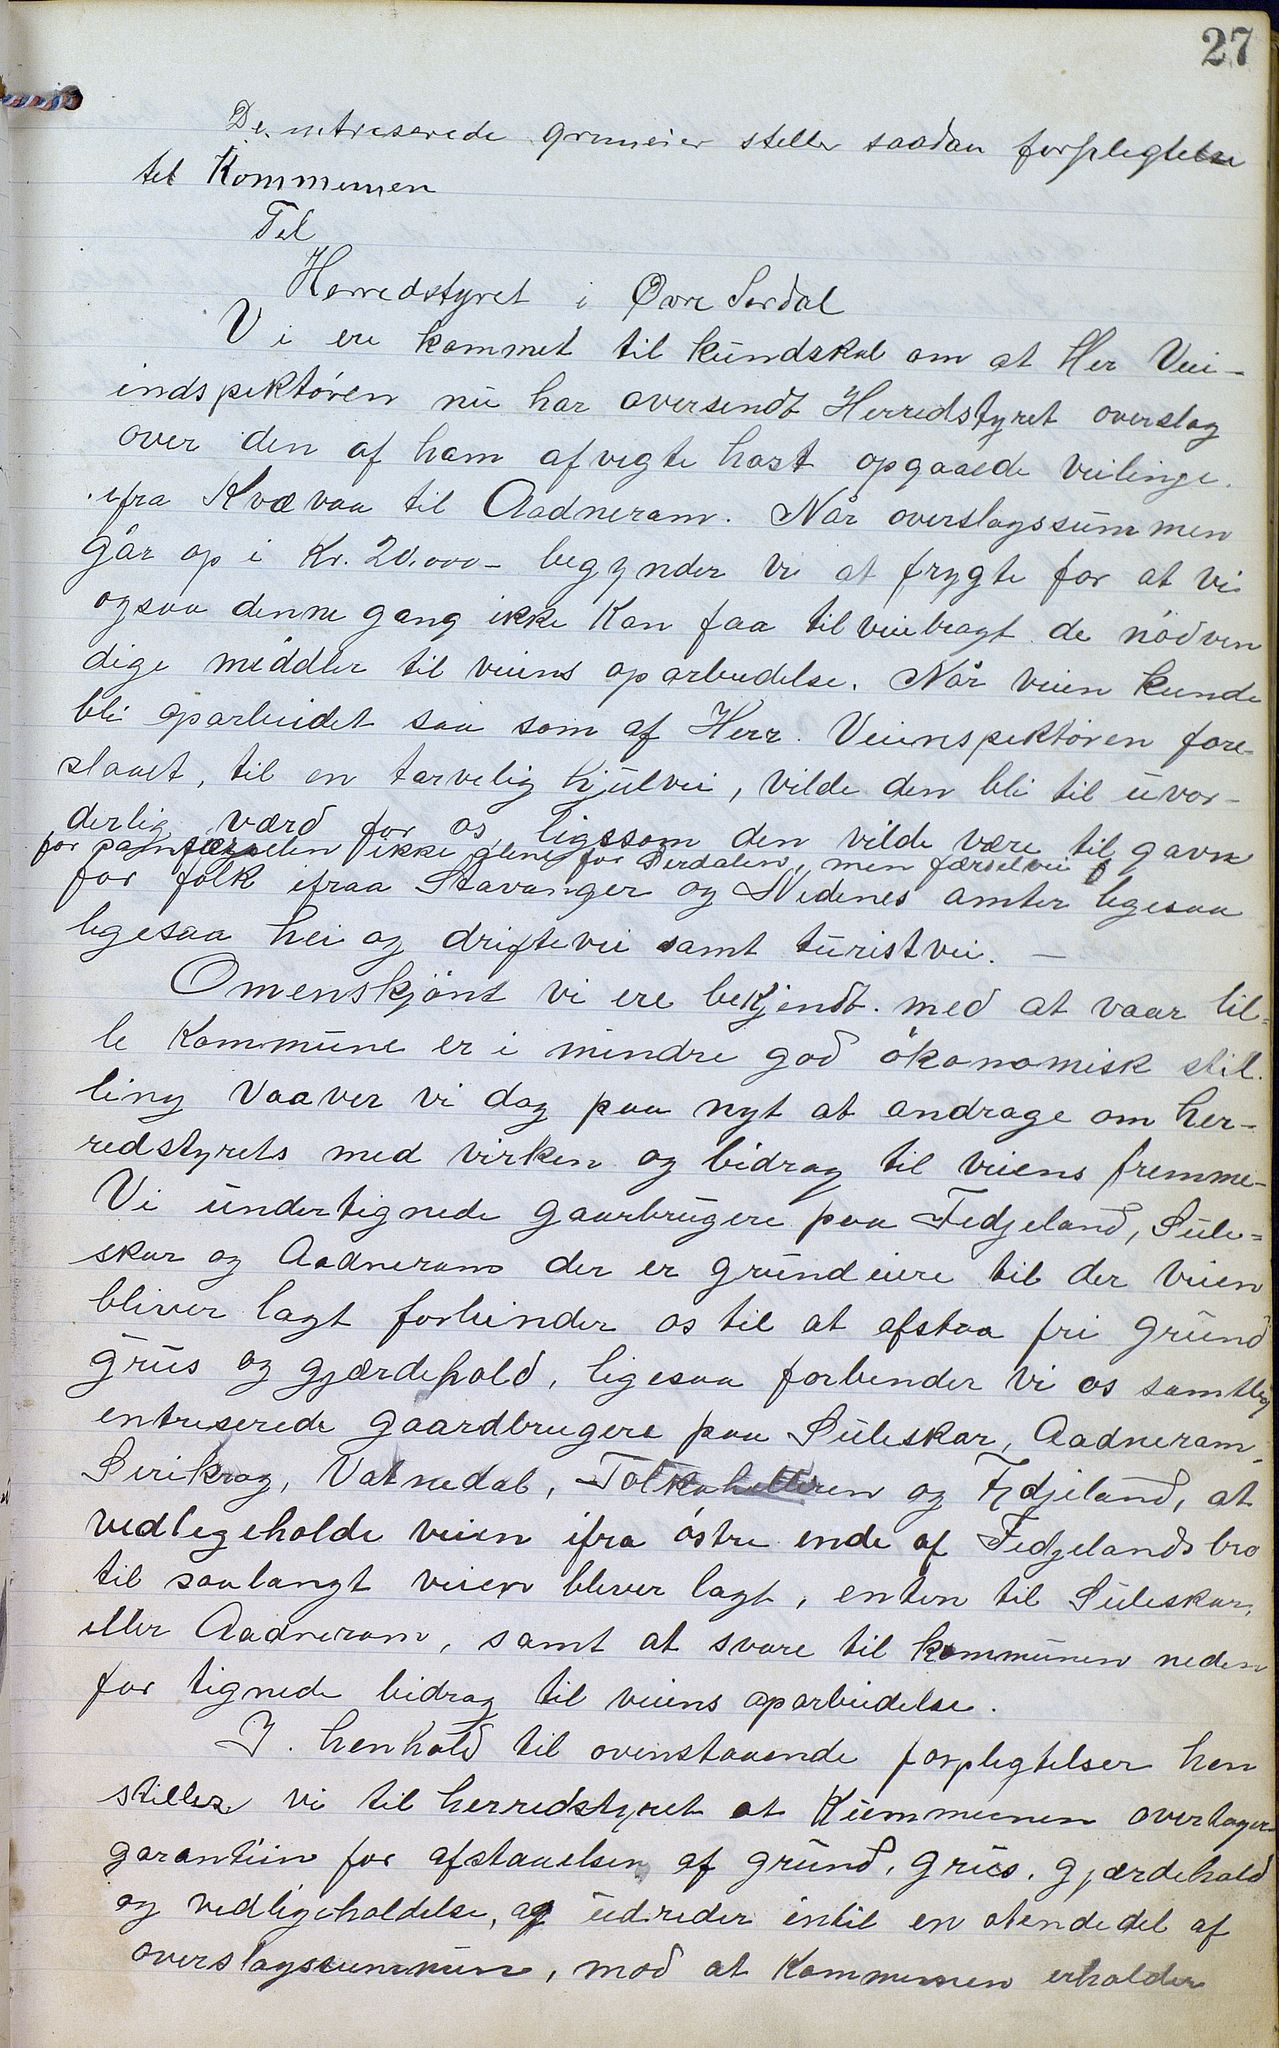 27
De intreserede gruneier stiller saadan forpligtelse
til Kommunen
Til
Herredstyret i Øvre Serdal
Vi ere kommet til kundskab om at Her Veii-
indspektøren nu har oversendt Herredstyret overslag
over den af ham afvigte høst opgaaede veilinge
ifra Kvævaa til Aadneram. Når overslagssummen
går op i Kr. 20.000 - begynder vi at frygte for at vi
ogsaa denne gang ikke kan faa tilveiebragt de nödven
dige middler til veiens oparbeidelse. Når veien kunde
bli oparbeidet saa som af Herr. Veiinspektøren fore-
slaaet, til en tarvelig kjulvei, vilde den bli til uvor-
derlig værd for os ligessom den vilde være til gavn
for samfærselen ikke alene for Serdalen, men færselvei
for folk ifraa Stavanger og Nedenes amter ligesaa
ligesaa hei og driftevei samt turistvei. -
Omenskjønt vi ere bekjendt med at vaar lil-
le Kommune er i mindre god økonomisk stil.
ling vaaver vi dog paa nyt at andrage om her-
redstyrets med virken og bidrag til veiens fremme-
Vi undertignede gaarbrugere paa Fedjeland, Sule-
skar og Aadneram der er grundeiere til der veien
bliver lagt forbinder os til at afstaa fri grund
grus og gjærdehold, ligesaa forbender vi os samtlig
entreserede gaardbrugere paa Suleskar, Aadneram,
Serikrag, Vatnedal, Tolkahelleren og Fedjeland, at
vedligeholde veien ifra østre ende af Fedjelandsbro
til saalangt veien bliver lagt, enten til Suleskar,
eller Aadneram, samt at svare til kommunen neden
for tignede bidrag til veiens oparbeidelse.
I. henhold til ovenstaaende forpligtelser hen
stiller vi til herredstyret at Kummunen overtager
garantiin for afstaaelsen af grund, grus, gjærdehold
og vedligeholdelse, og udreder intil en otendedel af
overslagsummen, mod at Kommunen erholder